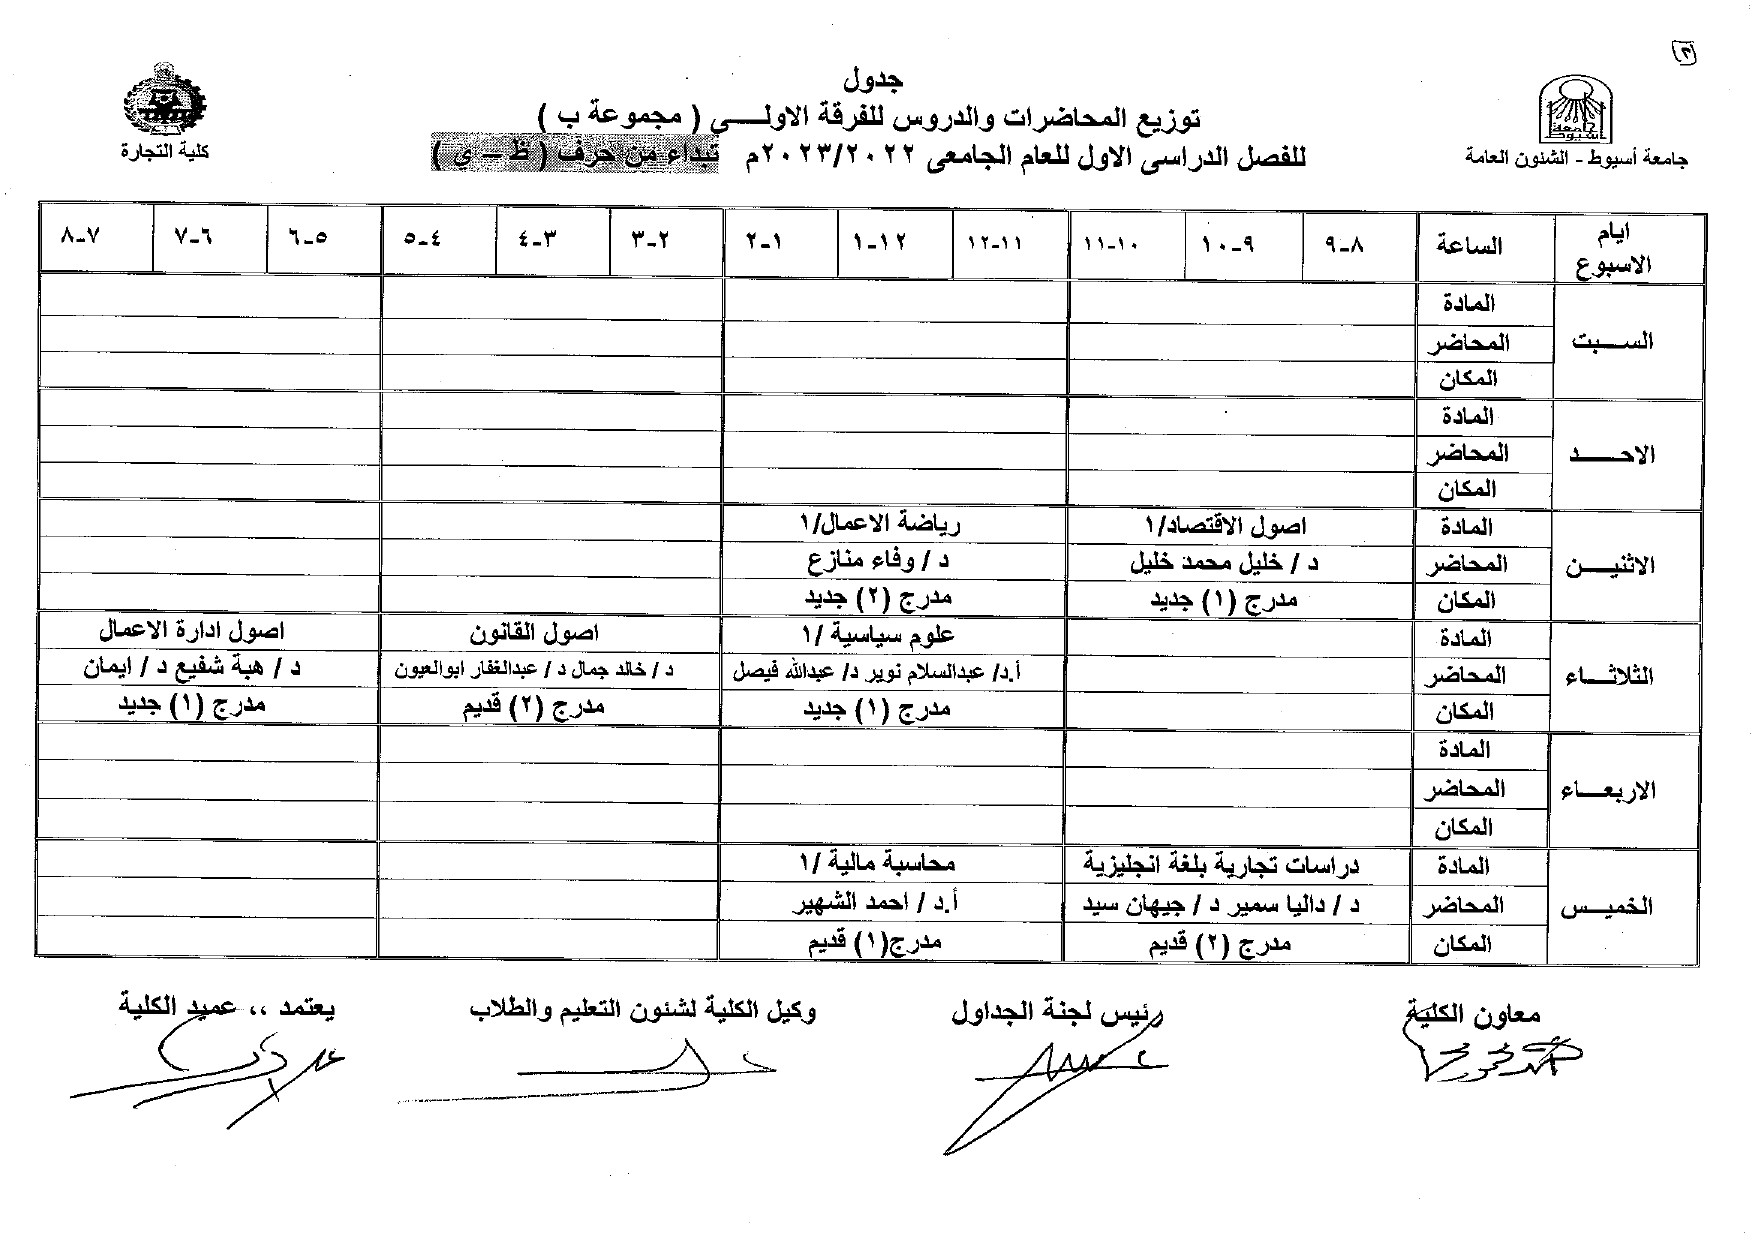 (٢)
جدول
توزيع المحاضرات والدروس للفرقة الاولــــى ( مجموعة ب )
للفصل الدراسى الاول للعام الجامعى ٢٠٢٣/٢٠٢٢م تبداء من حرف ( ظ – ى )
جامعة أسيوط - الشئون العامة
كلية التجارة
ايام الاسبوع الساعة ٨-٩ ٩-١٠ ١٠-١١ ١١-١٢ ١٢-١ ١-٢ ٢-٣ ٣-٤ ٤-٥ ٥-٦ ٦-٧ ٧-٨
السـبت
المادة
المحاضر
المكان
الاحـد
المادة
المحاضر
المكان
الاثنيـن
المادة اصول الاقتصاد/١ رياضة الاعمال/١
المحاضر د / خليل محمد خليل د / وفاء منازع
المكان مدرج (١) جديد مدرج (٢) جديد
الثلاثـاء
المادة علوم سياسية /١ اصول القانون اصول ادارة الاعمال
المحاضر أ.د/ عبدالسلام نوير د/ عبدالله فيصل د / خالد جمال د / عبدالغفار ابوالعيون د / هبة شفيع د / ايمان
المكان مدرج (١) جديد مدرج (٢) قديم مدرج (١) جديد
الاربعـاء
المادة
المحاضر
المكان
الخميـس
المادة دراسات تجارية بلغة انجليزية محاسبة مالية /١
المحاضر د / داليا سمير د / جيهان سيد أ.د / احمد الشهير
المكان مدرج (٢) قديم مدرج(١) قديم
معاون الكلية رئيس لجنة الجداول وكيل الكلية لشئون التعليم والطلاب يعتمد ،، عميد الكلية